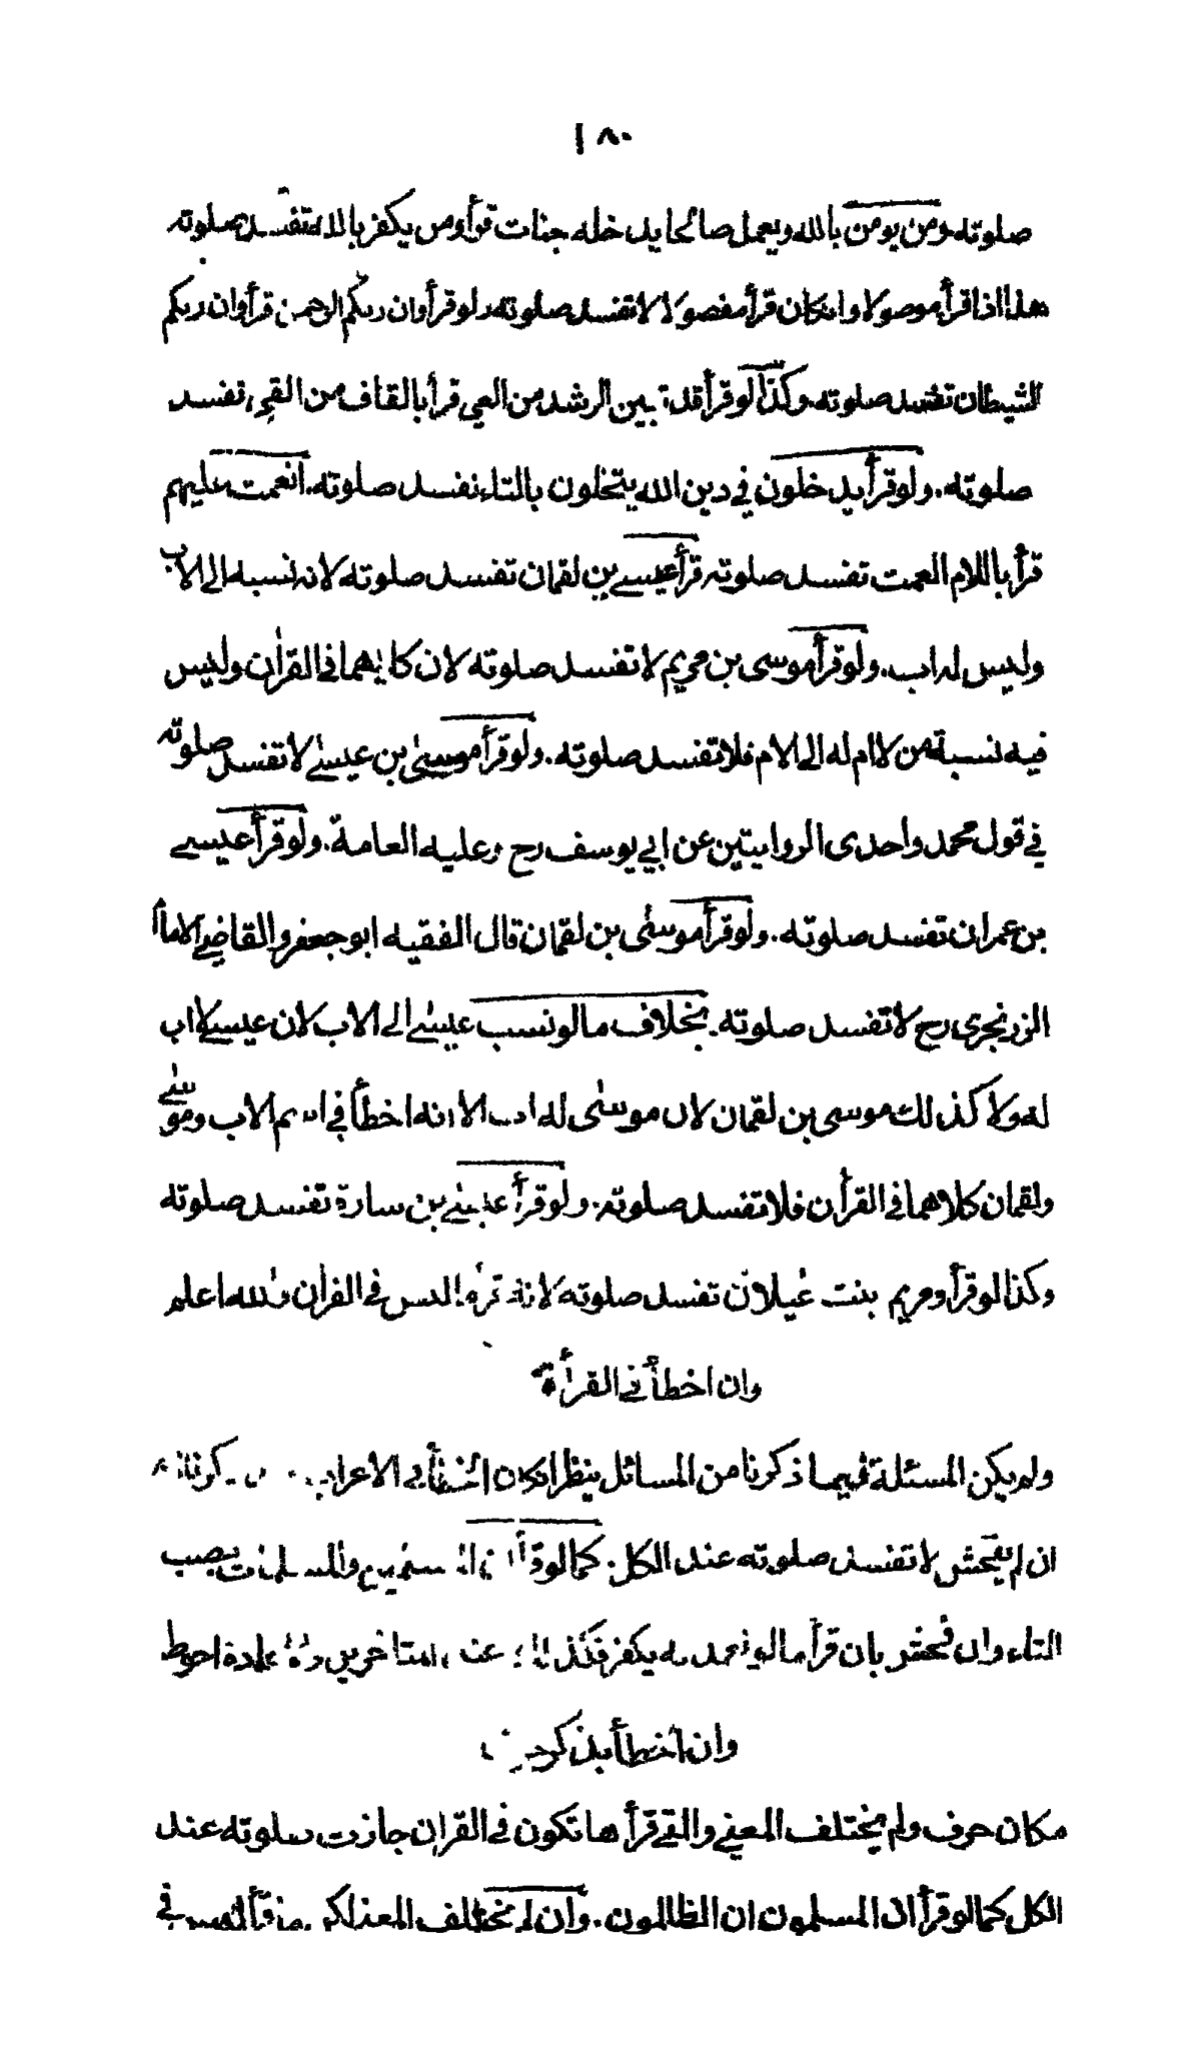 ١٨٠
صلوته ومن يومن بالله ويعمل صالحا يدخله جنات قرأ ومن يكفر بالله تفسد صلوته
هذا اذا قرأ موصولا وان كان قرأ مفصولا لا تفسد صلوته ولو قرأ وان ربكم الرحمن قرأ وان ربكم
الشيطان تفسد صلوته. وكذا لو قرأ قد تبين الرشد من الغي قرأ بالقاف من القي تفسد
صلوته. ولو قرأ يدخلون في دين الله يتخلون بالتاء تفسد صلوته. انعمت عليهم
قرأ باللام العمت تفسد صلوته قرأ عيسے بن لقمان تفسد صلوته لانه نسبه الى الاب
وليس له اب. ولو قرأ موسى بن مريم لا تفسد صلوته لان كلاهما فى القرأن وليس
فيه نسبة من لا ام له الى الام فلا تفسد صلوته. ولو قرأ موسىٰ بن عيسےٰ لا تفسد صلوته
في قول محمد واحدى الروايتين عن ابي يوسف رح وعليه العامة. ولو قرأ عيسے
بن عمران تفسد صلوته. ولو قرأ موسىٰ بن لقمان قال الفقيه ابو جعفر والقاضي الامام
الزرنجرى رح لا تفسد صلوته. بخلاف ما لو نسب عيسےٰ الى الاب لان عيسے لا اب
له ولا كذلك موسى بن لقمان لان موسىٰ له اب الا انه اخطأ في اسم الاب وموسےٰ
ولقمان كلاهما فى القرأن فلا تفسد صلوته. ولو قرأ عيسے بن سارة تفسد صلوته
وكذا لو قرأ ومريم بنت غيلان تفسد صلوته لانه قرأ ما ليس فى القرأن والله اعلم
وان اخطأ في القرأة
ولم يكن المسئلة فيما ذكرنا من المسائل ينظر ان كان الخطأ في الاعراب
ان لم يفحش لا تفسد صلوته عند الكل. كما لو قرأ ان المسلمين والمسلمات بنصب
التاء وان فحش بان قرأ ما لو تعمد به يكفر فكذلك عند المتأخرين والاعادة احوط
وان اخطأ بذكر حرف
مكان حرف ولم يختلف المعنى والتي قرأها تكون فى القرأن جازت صلوته عند
الكل كما لو قرأ ان المسلمون ان الظالمون. وان لم يختلف المعنى لكن